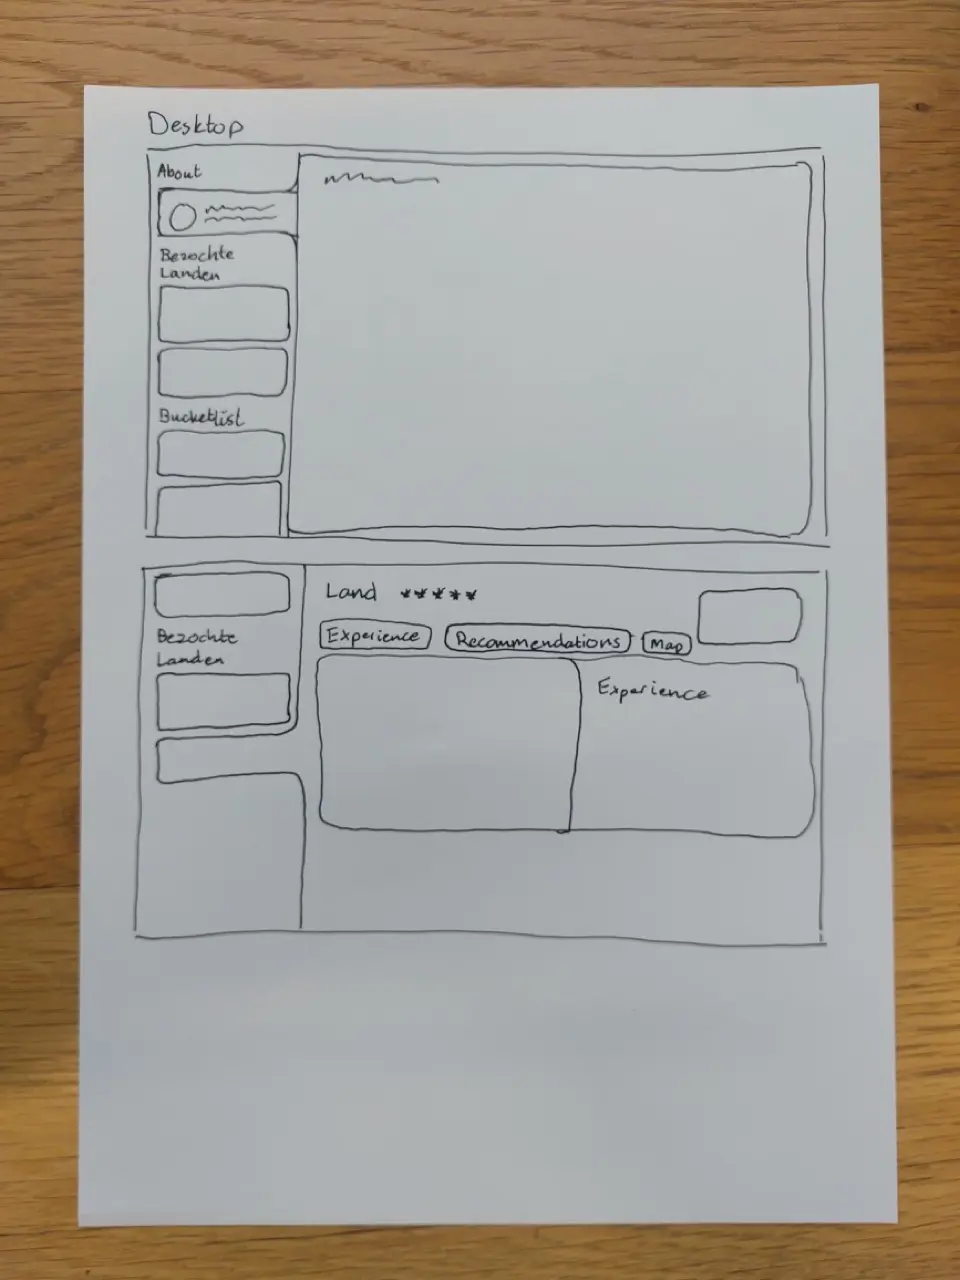 Desktop
About
Bezochte
Landen
Bucketlist
Land *****
Bezochte
Landen
Experience
Recommendations
Map
Experience